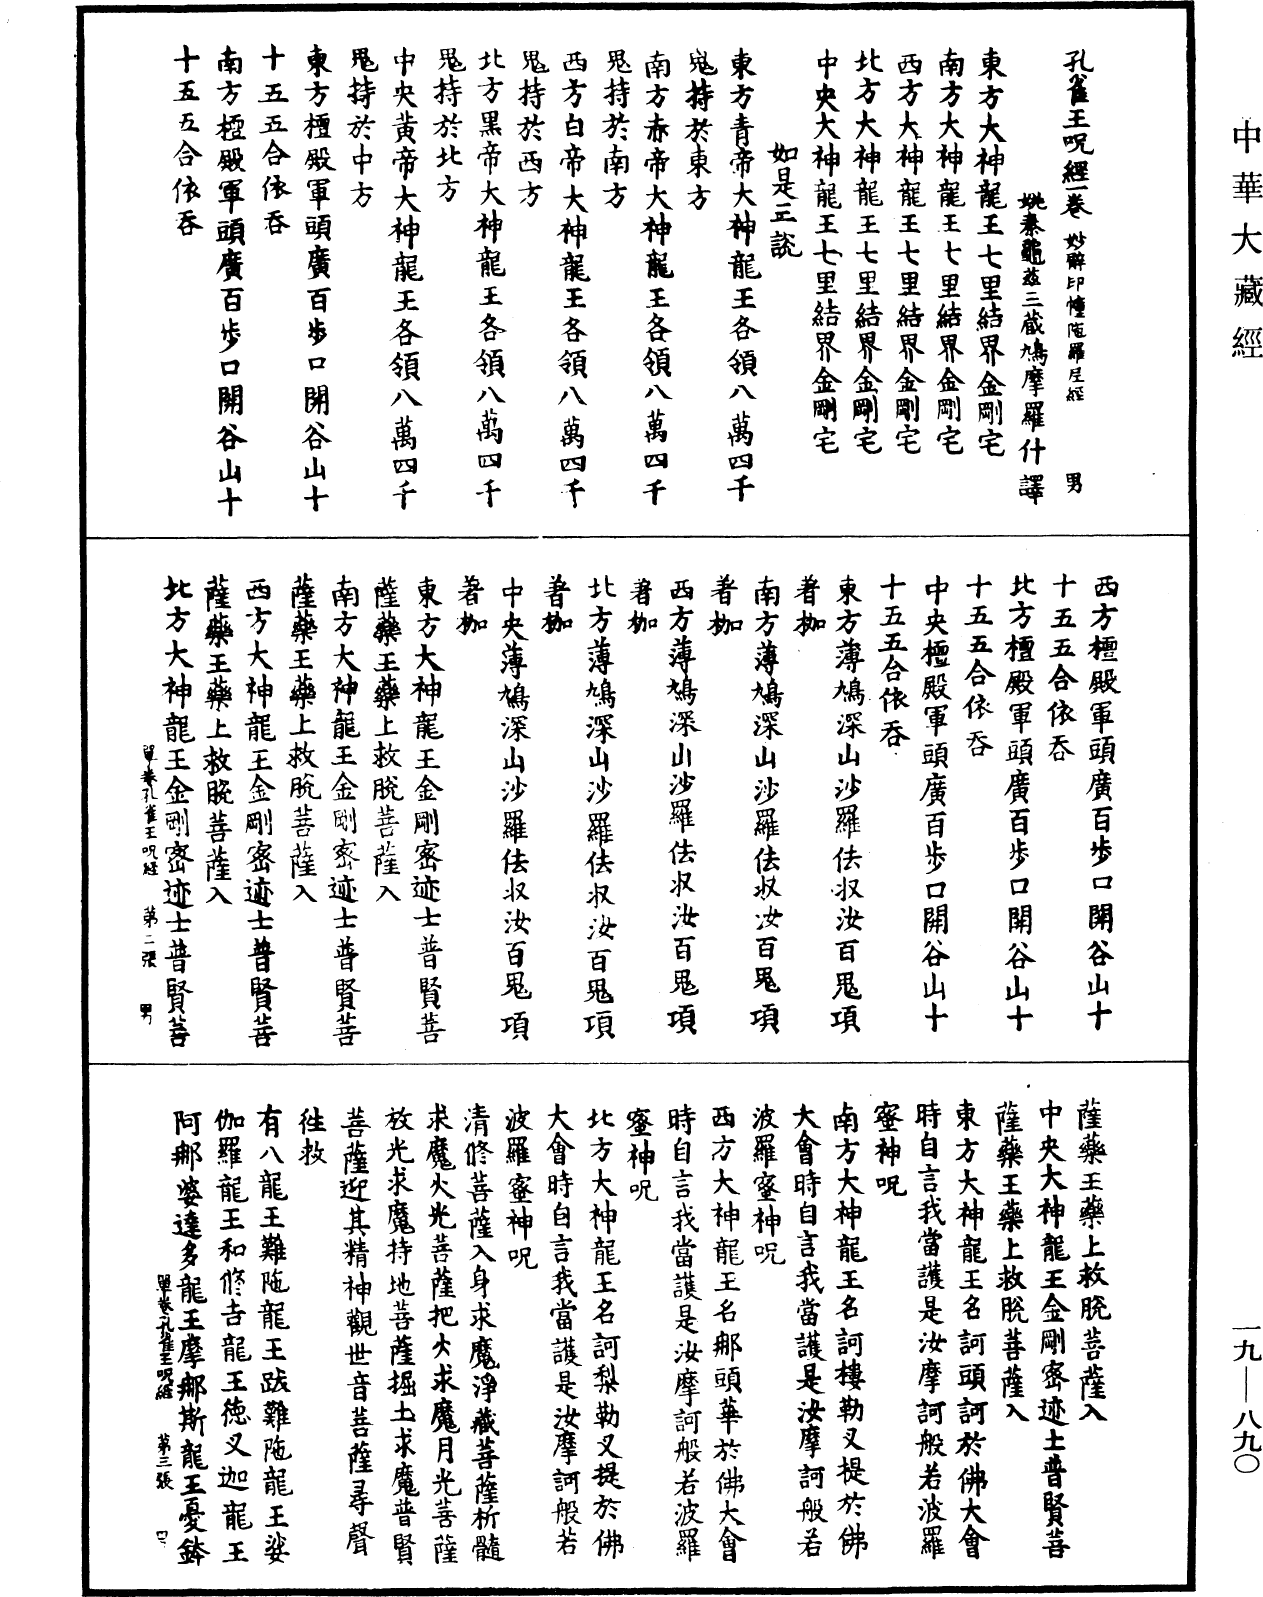 中華大藏經
孔雀王呪經一卷 妙辟印憧陁羅尼經 男
姚秦龜茲三藏鳩摩羅什譯
東方大神龍王七里結界金剛宅
南方大神龍王七里結界金剛宅
西方大神龍王七里結界金剛宅
北方大神龍王七里結界金剛宅
中央大神龍王七里結界金剛宅
如是三說
東方青帝大神龍王各領八萬四千
鬼持於東方
南方赤帝大神龍王各領八萬四千
鬼持於南方
西方白帝大神龍王各領八萬四千
鬼持於西方
北方黑帝大神龍王各領八萬四千
鬼持於北方
中央黃帝大神龍王各領八萬四千
鬼持於中方
東方檀殿軍頭廣百步口開谷山十
十五五合依吞
南方檀殿軍頭廣百步口開谷山十
十五五合依吞
西方檀殿軍頭廣百步口開谷山十
十五五合依吞
北方檀殿軍頭廣百步口開谷山十
十五五合依吞
中央檀殿軍頭廣百步口開谷山十
十五五合依吞
東方薄鳩深山沙羅佉收汝百鬼項
著枷
南方薄鳩深山沙羅佉收汝百鬼項
著枷
西方薄鳩深山沙羅佉收汝百鬼項
著枷
北方薄鳩深山沙羅佉收汝百鬼項
著枷
中央薄鳩深山沙羅佉收汝百鬼項
著枷
東方大神龍王金剛密迹士普賢菩
薩藥王藥上救脫菩薩入
南方大神龍王金剛密迹士普賢菩
薩藥王藥上救脫菩薩入
西方大神龍王金剛密迹士普賢菩
薩藥王藥上救脫菩薩入
北方大神龍王金剛密迹士普賢菩
單卷孔雀王呪經 第二張 男
薩藥王藥上救脫菩薩入
中央大神龍王金剛密迹士普賢菩
薩藥王藥上救脫菩薩入
東方大神龍王名訶頭訶於佛大會
時自言我當護是汝摩訶般若波羅
蜜神呪
南方大神龍王名訶樓勒叉提於佛
大會時自言我當護是汝摩訶般若
波羅蜜神呪
西方大神龍王名那頭華於佛大會
時自言我當護是汝摩訶般若波羅
蜜神呪
北方大神龍王名訶梨勒叉提於佛
大會時自言我當護是汝摩訶般若
波羅蜜神呪
清修菩薩入身求魔淨藏菩薩析髓
求魔火光菩薩把火求魔月光菩薩
放光求魔持地菩薩掘土求魔普賢
菩薩迎其精神觀世音菩薩尋聲
往救
有八龍王難陁龍王跋難陁龍王娑
伽羅龍王和修吉龍王德叉迦龍王
阿那婆達多龍王摩那斯龍王憂鉢
單卷孔雀王呪經 第三張
一九—八九〇